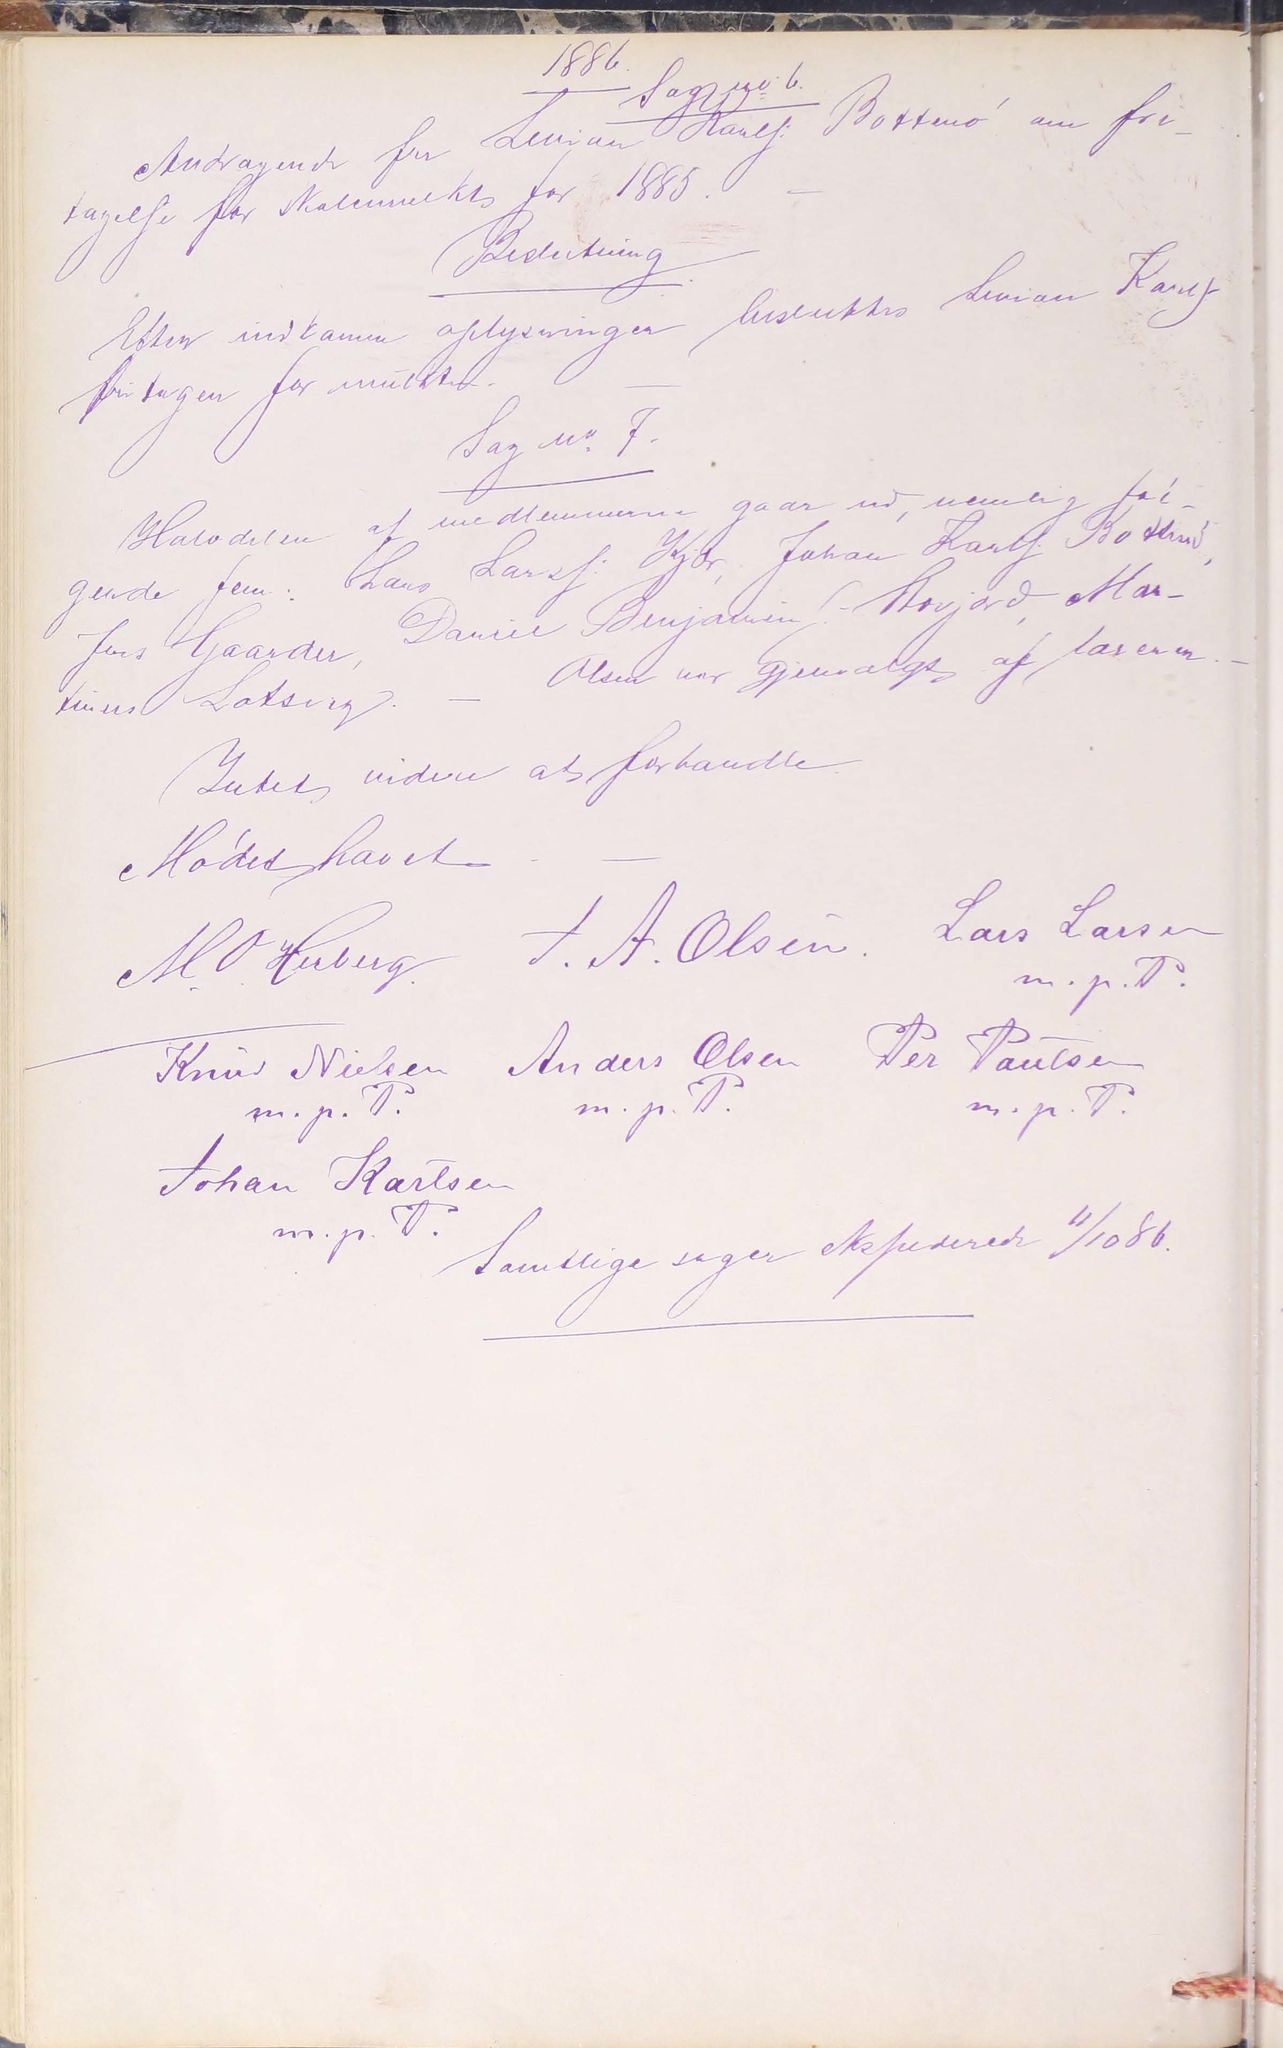 1886.
Sag no. 6.
Andragende fra Lenian Karls: Bottenó om fri-
tagelse for skolemulkt for 1885. —
Beslutning
Efter indkomne oplysninger besluttes Lenian Karls
fritagen for mulkten. —
Sag no. 7.
Halvdelen af medlemmerne gaar ud, nemlig föl-
gende fem: Lars Larss: Kjör, Johan Karls: Bottenö,
Jens Gaarder, Daniel Benjamins: Storjord, Mar-
tinus Lotsvig. — Olsen var gjenvalgt af lærerne. —
Intet videre at forhandle.
Mödet hævet. —
M. O. Herberg. J. A. Olsen. Lars Larsen
m. p. P.
Knud Nielsen Anders Olsen Per Paulsen
m. p. P. m. p. P. m. p. P.
Johan Karlsen
m. p. P.
Samtlige sager ekspederede 11/10 86.